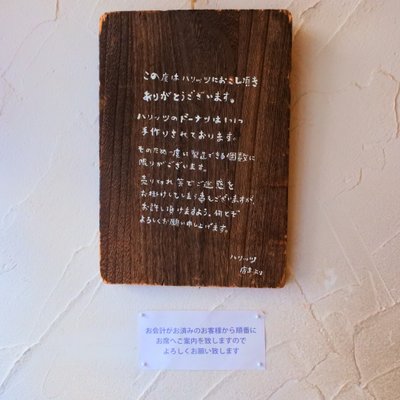 この度はハリッツにおこし頂き
ありがとうございます。
ハリッツのドーナツは1つ1つ
手作りされております。
そのため一度に製造できる個数に
限りがございます。
売り切れ等でご迷惑を
お掛けしてしまう事もございますが、
お許し頂けますよう、何とぞ
よろしくお願い申し上げます。
ハリッツ
店主より
お会計がお済みのお客様から順番に
お席へご案内を致しますので
よろしくお願い致します